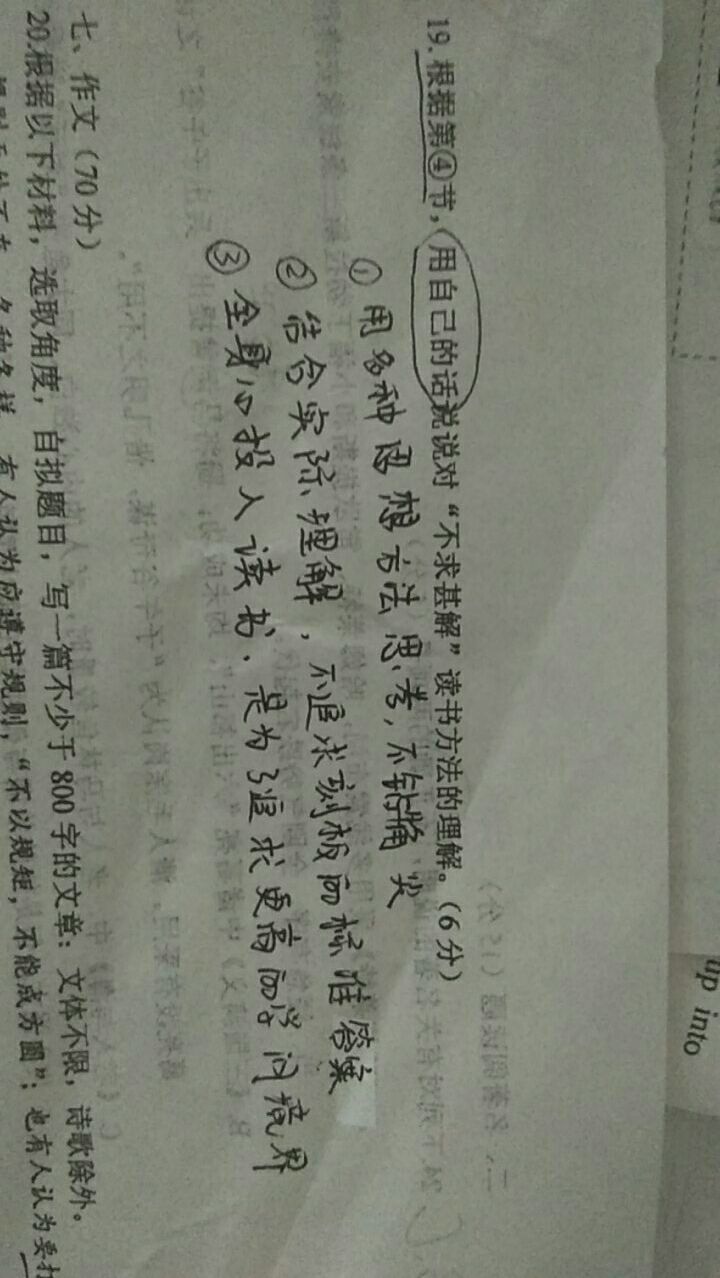 up into
19.根据第④节，用自己的话说说对“不求甚解”读书方法的理解。（6分）
① 用多种思想方法思考，不钻牛角尖
② 结合实际理解，不追求刻板的标准答案
③ 全身心投入读书、是为了追求更高的学问境界
七、作文（70分）
20.根据以下材料，选取角度，自拟题目，写一篇不少于800字的文章；文体不限，诗歌除外。
有人认为应遵守规则，“不以规矩，不能成方圆”；也有人认为要打